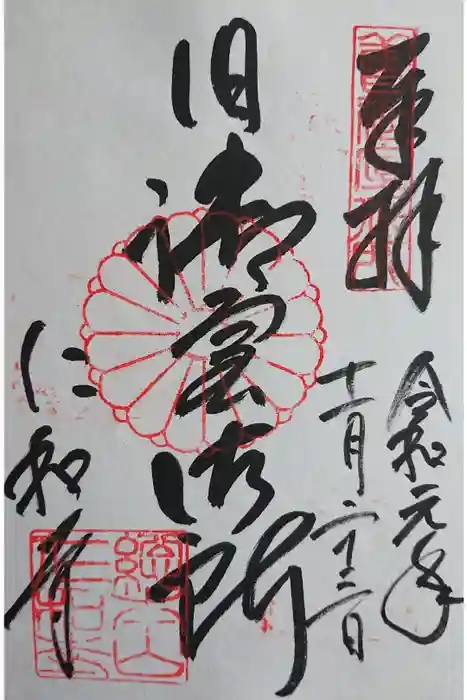 奉拝
令和元年
十一月二十三日
旧御室御所
仁和寺